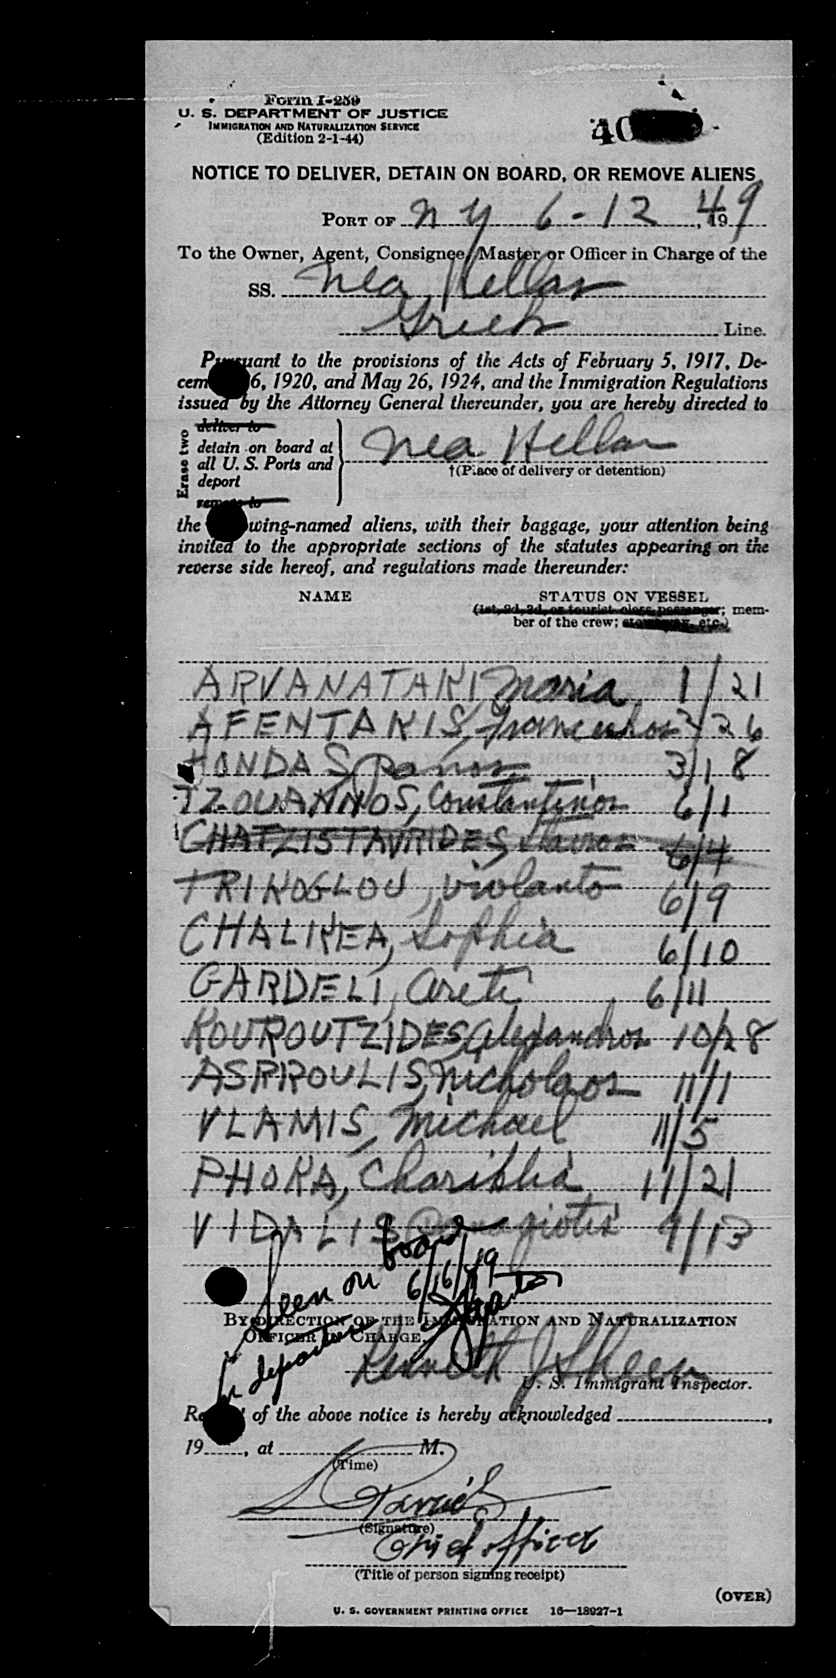 Form I-259
U. S. DEPARTMENT OF JUSTICE
IMMIGRATION AND NATURALIZATION SERVICE
(Edition 2-1-44)
40
NOTICE TO DELIVER, DETAIN ON BOARD, OR REMOVE ALIENS
PORT OF N Y 6-12, 1949
To the Owner, Agent, Consignee, Master or Officer in Charge of the
SS. Nea Hellas
Greek Line.
Pursuant to the provisions of the Acts of February 5, 1917, De-
cem 6, 1920, and May 26, 1924, and the Immigration Regulations
issued by the Attorney General thereunder, you are hereby directed to
Erase two
deliver to
detain on board at
all U. S. Ports and
deport
remove to
Nea Hellas
†(Place of delivery or detention)
the wing-named aliens, with their baggage, your attention being
invited to the appropriate sections of the statutes appearing on the
reverse side hereof, and regulations made thereunder:
NAME STATUS ON VESSEL
(1st, 2d, 3d, or tourist class passenger; mem-
ber of the crew; stowaway, etc.)
ARVANATAKI, Maria 1/21
AFENTAKIS, 2/26
HONDAS, Panos 3/18
TZOUANNOS, Constantinos 6/1
CHATZISTAVRIDES, Stavros 6/4
TRINOGLOU, Violanto 6/9
CHALIKEA, Sophia 6/10
GARDELI, Areti 6/11
KOUROUTZIDES, Alexandros 10/28
ASPROULIS, Nicholaos 11/1
VLAMIS, Michael 11/5
PHOKA, Chariklia 11/21
VIDALIS, Panagiotis 9/13
Seen on board
6/16/49
on departure
BY DIRECTION OF THE IMMIGRATION AND NATURALIZATION
OFFICER IN CHARGE.
Kenneth J Sheen
U. S. Immigrant Inspector.
Re of the above notice is hereby acknowledged ,
19 , at M.
(Time)
(Signature)
Chief officer
(Title of person signing receipt)
(OVER)
U. S. GOVERNMENT PRINTING OFFICE 16—18927-1